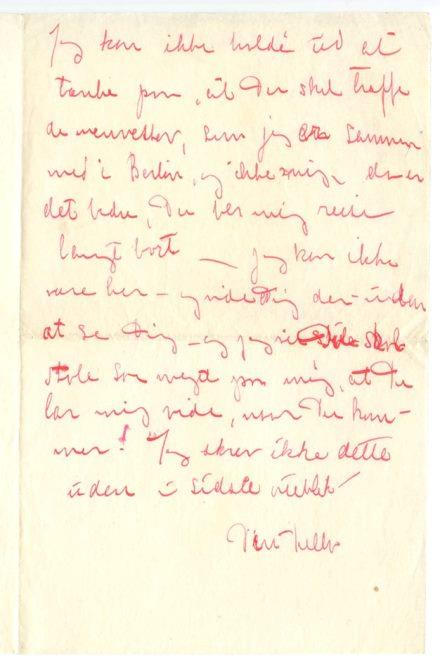 Jeg kan ikke holde ud at
tænke paa, at Du skal træffe
de mennesker, som jeg sammen
med i Berlin, og ikke mig, da er
det bedre, Du ber mig reise
langt bort — jeg kan ikke
være her — og vide Dig der — uden
at se Dig — og jeg vil
stole saa meget paa mig, at Du
lar mig vide, naar Du kom-
mer! Jeg skrev ikke dette
uden i sidste